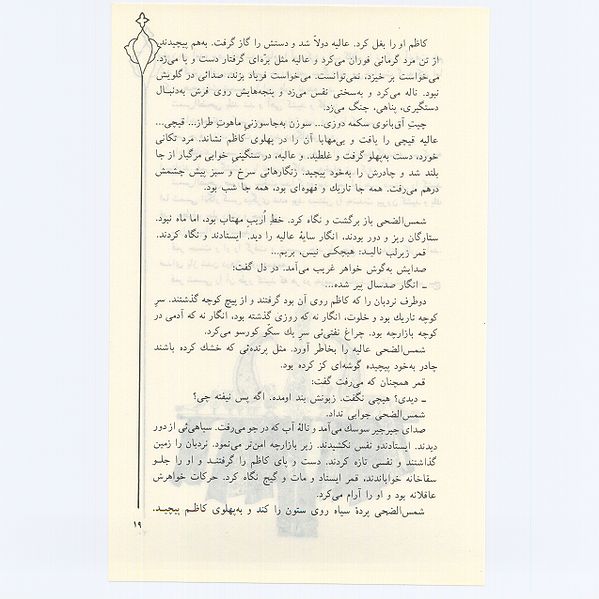 کاظم او را بغل کرد. عالیه دولاّ شد و دستش را گاز گرفت. به‌هم پیچیدند.
از تن مرد گرمائی فوران می‌کرد و عالیه مثل بره‌ای گرفتار دست و پا می‌زد.
می‌خواست بر خیزد، نمی‌توانست. می‌خواست فریاد بزند، صدائی در گلویش
نبود. ناله می‌کرد و به‌سختی نفس می‌زد و پنجه‌هایش روی فرش به‌دنبال
دستگیری، پناهی، چنگ می‌زد.
چیتِ آق‌بانوی سکمه دوزی... سوزن به‌جاسوزنیِ ماهوت طراز... قیچی...
عالیه قیچی را یافت و بی‌مهابا آن را در پهلوی کاظم نشاند. مرد تکانی
خورد، دست به‌پهلو گرفت و غلطید. و عالیه، در سنگینیِ خوابی مرگبار از جا
بلند شد و چادرش را به‌خود پیچید. زنگارهائی سرخ و سبز پیش چشمش
درهم می‌رفت. همه جا تاریك و قهوه‌ای بود، همه جا شب بود.
شمس‌الضحی باز برگشت و نگاه کرد. خطِ اُریبِ مهتاب بود، اما ماه نبود.
ستارگان ریز و دور بودند، انگار سایهٔ عالیه را دید. ایستادند و نگاه کردند.
قمر زیرلب نالید: هیچکی نیس، بریم...
صدایش به‌گوش خواهر غریب می‌آمد. در دل گفت:
ـ انگار صدسال پیر شده...
دوطرف نردبان را که کاظم روی آن بود گرفتند و از پیچ کوچه گذشتند. سرِ
کوچه تاریك بود و خلوت، انگار نه که روزی گذشته بود، انگار نه که آدمی در
کوچه بازارچه بود. چراغ نفتی‌ئی سر یك سکّو کورسو می‌کرد.
شمس‌الضحی عالیه را بخاطر آورد. مثل پرنده‌ئی که خشك کرده باشند
چادر به‌خود پیچیده گوشه‌ای کز کرده بود.
قمر همچنان که می‌رفت گفت:
ـ دیدی؟ هیچی نگفت. زبونش بند اومده. اگه پس نیفته چی؟
شمس‌الضحی جوابی نداد.
صدای جیرجیر سوسك می‌آمد و نالهٔ آب که در جو می‌رفت. سیاهی‌ئی از دور
دیدند. ایستادندو نفس نکشیدند. زیر بازارچه امن‌تر می‌نمود. نردبان را زمین
گذاشتند و نفسی تازه کردند. دست و پای کاظم را گرفتند و او را جلو
سقاخانه خواباندند، قمر ایستاد و مات و گیج نگاه کرد. حرکات خواهرش
عاقلانه بود و او را آرام می‌کرد.
شمس‌الضحی پردهٔ سیاه روی ستون را کند و به‌پهلوی کاظم پیچید.
۱۹